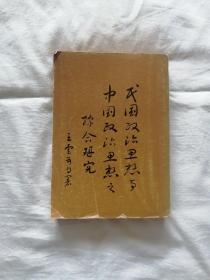 民国政治思想与
中国政治思想之
综合研究
王云五自署